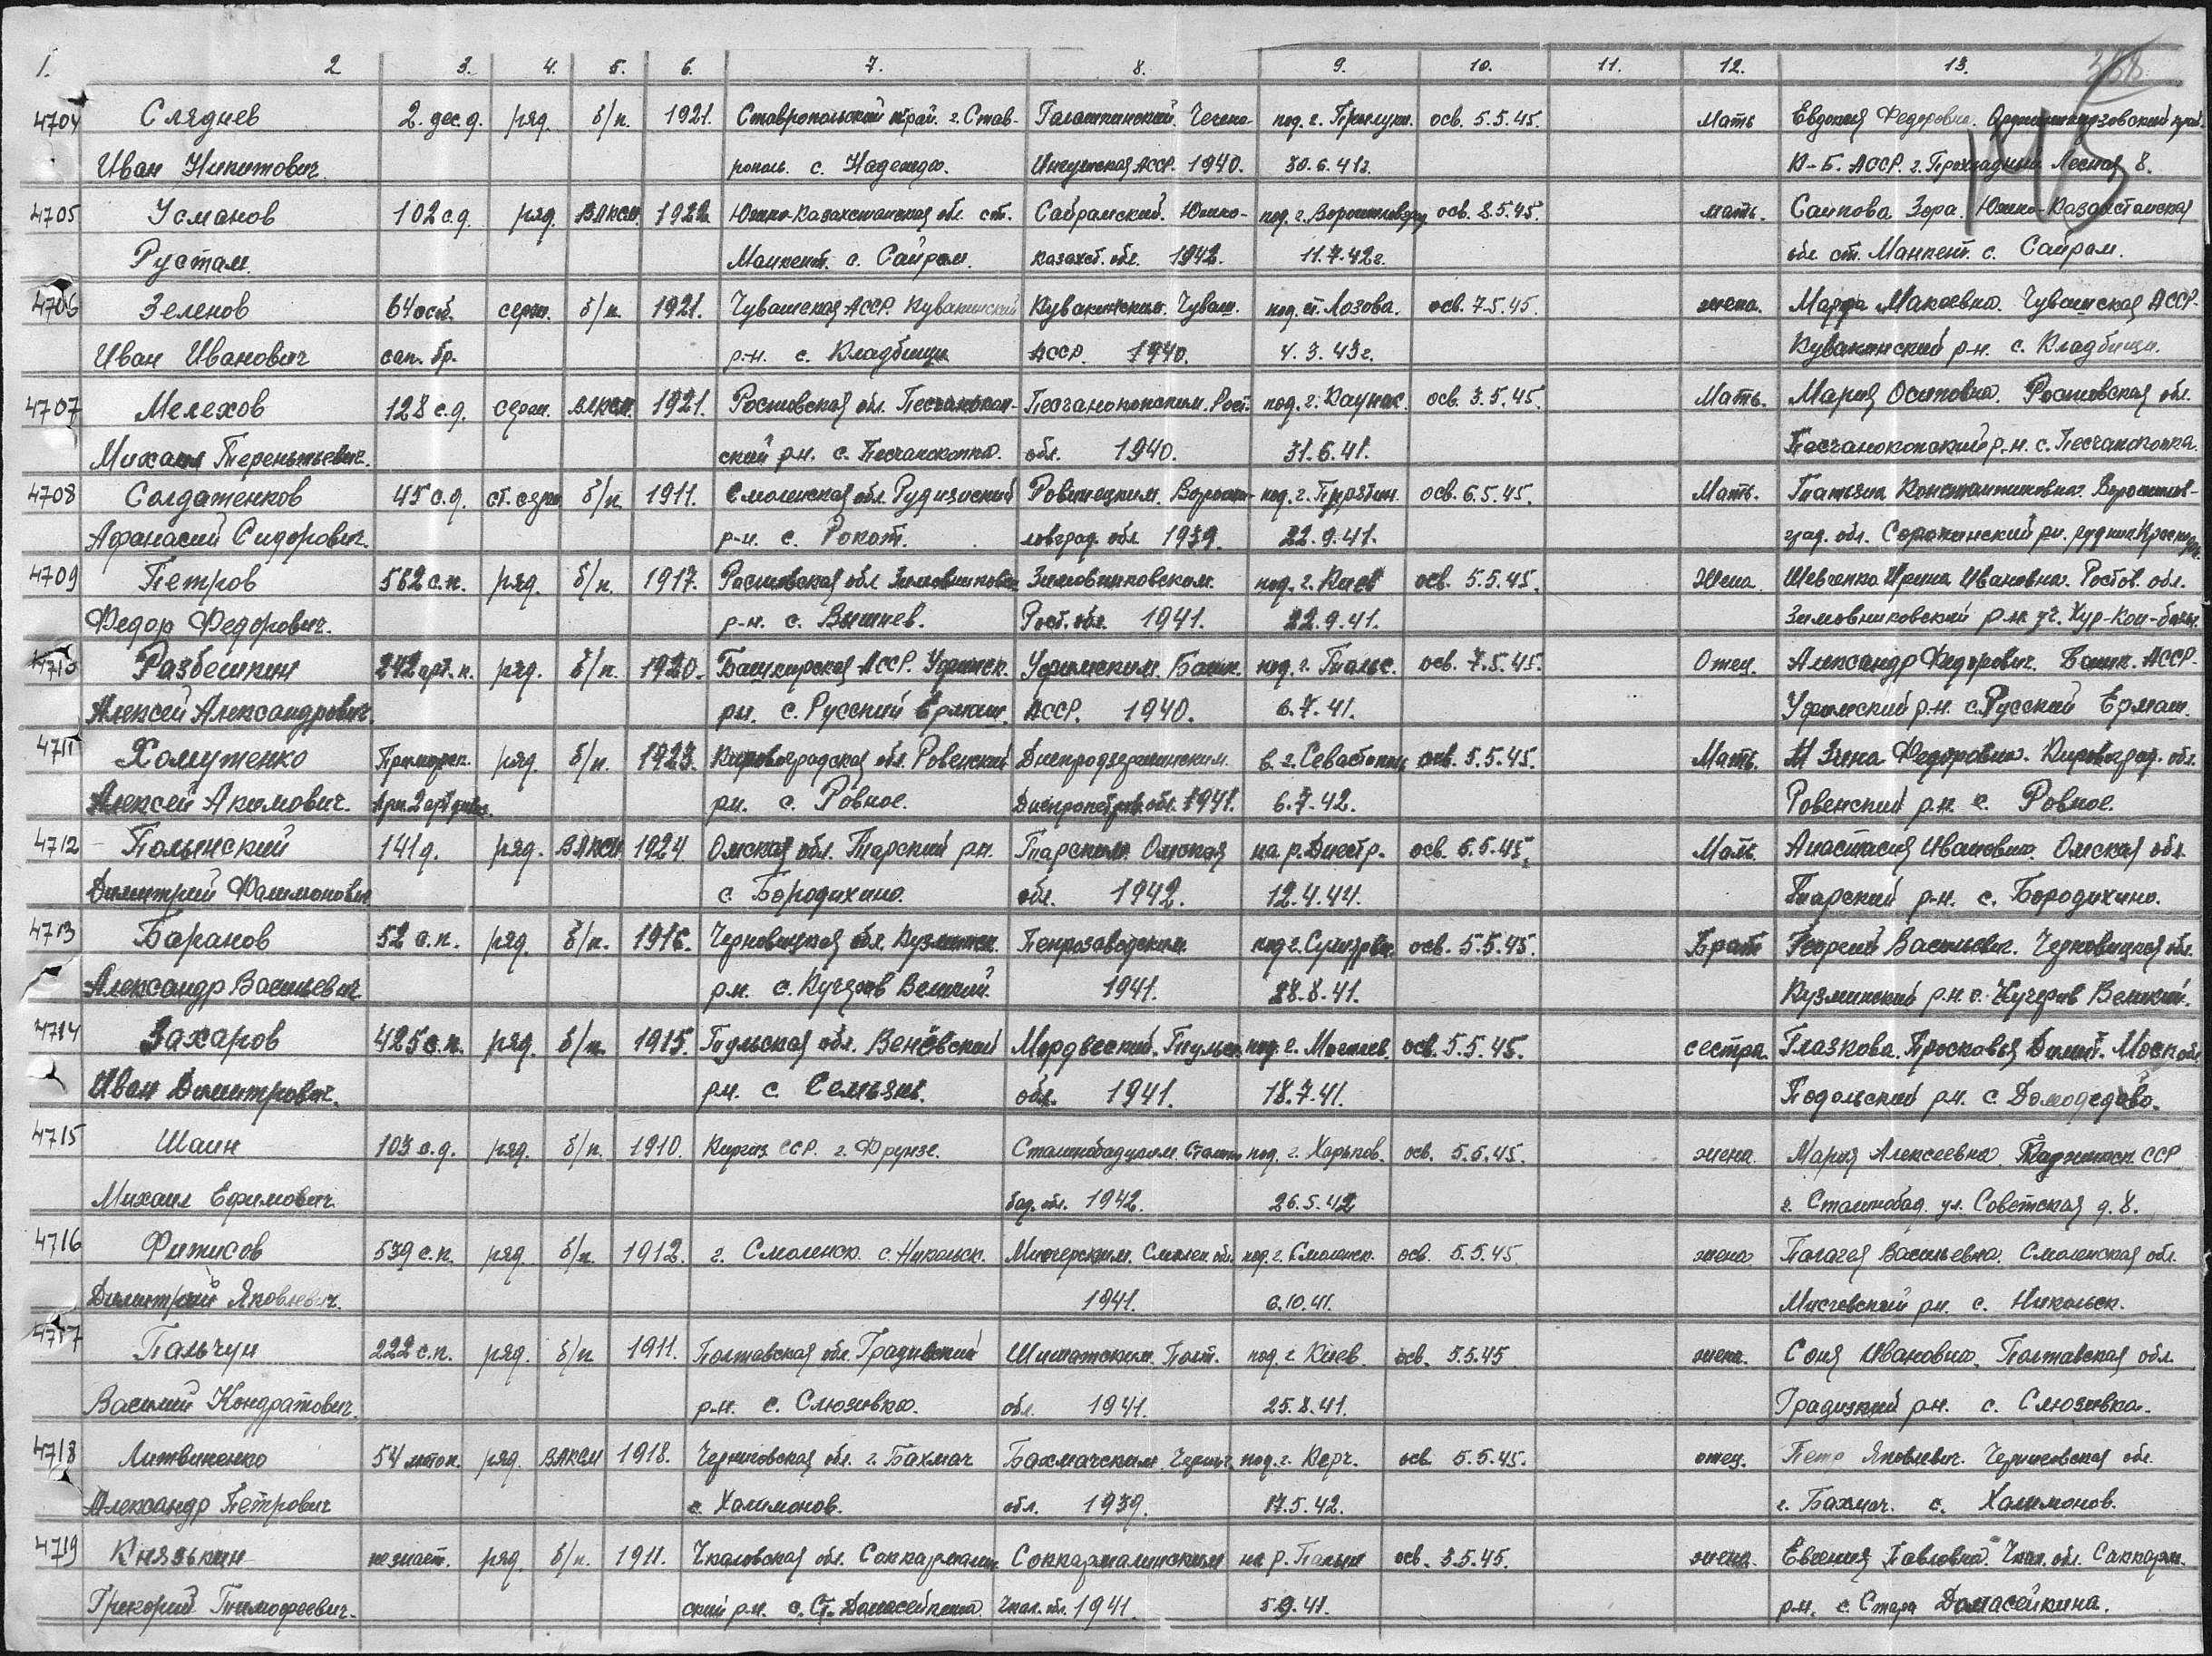 1. 2 3. 4. 5. 6. 7. 8. 9. 10. 11. 12. 13.
4704 Сляднев 2. дес. д. ряд. б/п. 1921. Ставропольский край. г. Став- Галашкинский. Чечено- под. г. Прилуки. осв. 5.5.45. Мать Евдокия Федоровна. Орджоникидзовский край.
Иван Никитович. рополь. с. Надежда. Ингушская АССР. 1940. 30.6.41г. К-Б. АССР. г. Прохладный Лесная 8.
4705 Усманов 102 с.д. ряд. ВЛКСМ. 1922 Южно-Казахстанская обл. ст. Сайрамский. Южно- под. г. осв. 8.5.45. мать. Саипова Зора. Южно-Казахстанская
Рустам. Манкент. с. Сайрам. Казахст. обл. 1942. 11.7.42г. обл. ст. Манкент. с. Сайрам.
4706 Зеленов 64 особ. серж. б/п. 1921. Чувашская АССР. Кувакинский Кувакинским. Чуваш. под. ст. Лозова. осв. 7.5.45. жена. Марфа Макаевна. Чувашская АССР.
Иван Иванович сап. бр. р-н. с. Кладбищи АССР. 1940. 4.3.43г. Кувакинский р-н. с. Кладбищи.
4707 Мелехов 128 с.д. серж. ВЛКСМ. 1921. Ростовская обл. Песчанокоп- Песчанокопским. Рост. под. г. Каунас. осв. 3.5.45. Мать. Мария Осиповна. Ростовская обл.
Михаил Терентьевич. ский р-н. с. Песчанокопка. обл. 1940. 31.6.41. Песчанокопский р-н. с. Песчанокопка.
4708 Солдатенков 45 с.д. ст. серж б/п. 1911. Смоленская обл. Руднянский Ровенецким. Вороши- под. г. осв. 6.5.45. Мать. Татьяна Константиновна. Ворошилов-
Афанасий Сидорович. р-н. с. Рокот. ловград. обл 1939. 22.9.41. град. обл. Сорокинский р-н. рудник
4709 Петров 562 с.п. ряд. б/п. 1917. Ростовская обл Зимовниковск. Зимовниковском. под. г. Киев осв. 5.5.45. Жена. Шевченко Ирина Ивановна. Ростов. обл.
Федор Федорович. р-н. с. Вишнев. Рост. обл. 1941. 22.9.41. Зимовниковский р-н.
4710 Разбешкин 242 арт. п. ряд. б/п. 1920. Башкирская АССР. Уфимск. Уфимским. Башк. под. г. осв. 7.5.45. Отец. Александр Федорович. Башк. АССР.
Алексей Александрович. р-н. с. Русский Юрмаш. АССР. 1940. 6.7.41. Уфимский р-н. с. Русский Ермаш.
4711 Хомутенко Приморск. ряд. б/п. 1923. Кировоградская обл. Ровенский Днепродзержинским. в. г. Севастополь осв. 5.5.45. Мать. Зина Федоровна. Кировоград. обл.
Алексей Акимович. р-н. с. Ровное. Днепропетров. обл. 1941. 6.7.42. Ровенский р-н. с. Ровное.
4712 Полынский 141 д. ряд. ВЛКСМ 1924 Омская обл. Тарский р-н. Тарским. Омская на р. Днестр. осв. 6.5.45. Мать. Анастасия Ивановна. Омская обл
Димитрий Фалимонович с. Бородихино. обл. 1942. 12.4.44. Тарский р-н. с. Бородихино.
4713 Баранов 52 с.п. ряд. б/п. 1916. Черновицкая обл. Петрозаводским. под г. осв. 5.5.45. Брат Георгий Васильевич. Черновицкая обл.
Александр Васильевич р-н. с. Кучеров Великий. 1941. 28.8.41. Кузминский р-н. с. Кучеров Великий.
4714 Захаров 425 с.п. ряд. б/п. 1915. Тульская обл. Венёвский Мордвеский. Тульск. под г. Могилев. осв. 5.5.45. сестра. Глазкова. Просковья Димит. Моск обл
Иван Димитрович. р-н. с. Семьянь. обл. 1941. 18.7.41. Подольский р-н. с. Домодедово.
4715 Шаин 103 с.д. ряд. б/п. 1910. Киргиз ССР. г. Фрунзе. Сталинобадским. Сталин под. г. Харьков. осв. 5.5.45. жена. Мария Алексеевна. Таджикск ССР
Михаил Ефимович. бад. обл. 1942. 26.5.42 г. Сталинобад. ул. Советская д. 8.
4716 Фитисов 539 с.п. ряд. б/п. 1912. г. Смоленск. с. Никольск. Смолен обл. под. г. Смоленск. осв. 5.5.45 жена Палагея Васильевна. Смоленская обл.
Димитрий Яковлевич. 1941. 6.10.41. р-н. с. Никольск.
4717 Пальчун 222 с.п. ряд. б/п 1911. Полтавская обл. Градизский Шишатским. Полт. под. г. Киев. осв. 5.5.45 жена. Соня Ивановна. Полтавская обл.
Василий Кондратович. р-н. с. Слюзивка. обл. 1941. 25.8.41. Градизский р-н. с. Слюзивка.
4718 Литвиненко 54 мотоп. ряд. ВЛКСМ 1918. Черниговская обл. г. Бахмач Бахмачским. Черниг. под. г. Керч. осв. 5.5.45. отец. Петр Яковлевич. Черниговская обл.
Александр Петрович с. Халимонов. обл. 1939. 17.5.42. г. Бахмач. с. Халимонов.
4719 Князькин не знает. ряд. б/п. 1911. Чкаловская обл. Соккармалин Соккармалинским на р. осв. 3.5.45. жена. Евгения Павловна. Чкал. обл. Саккарм.
Григорий Тимофеевич. ский р-н. с. Ст. Домосейкина. Чкал. обл. 1941. 5.9.41. р-н. с. Стара Домасейкина.